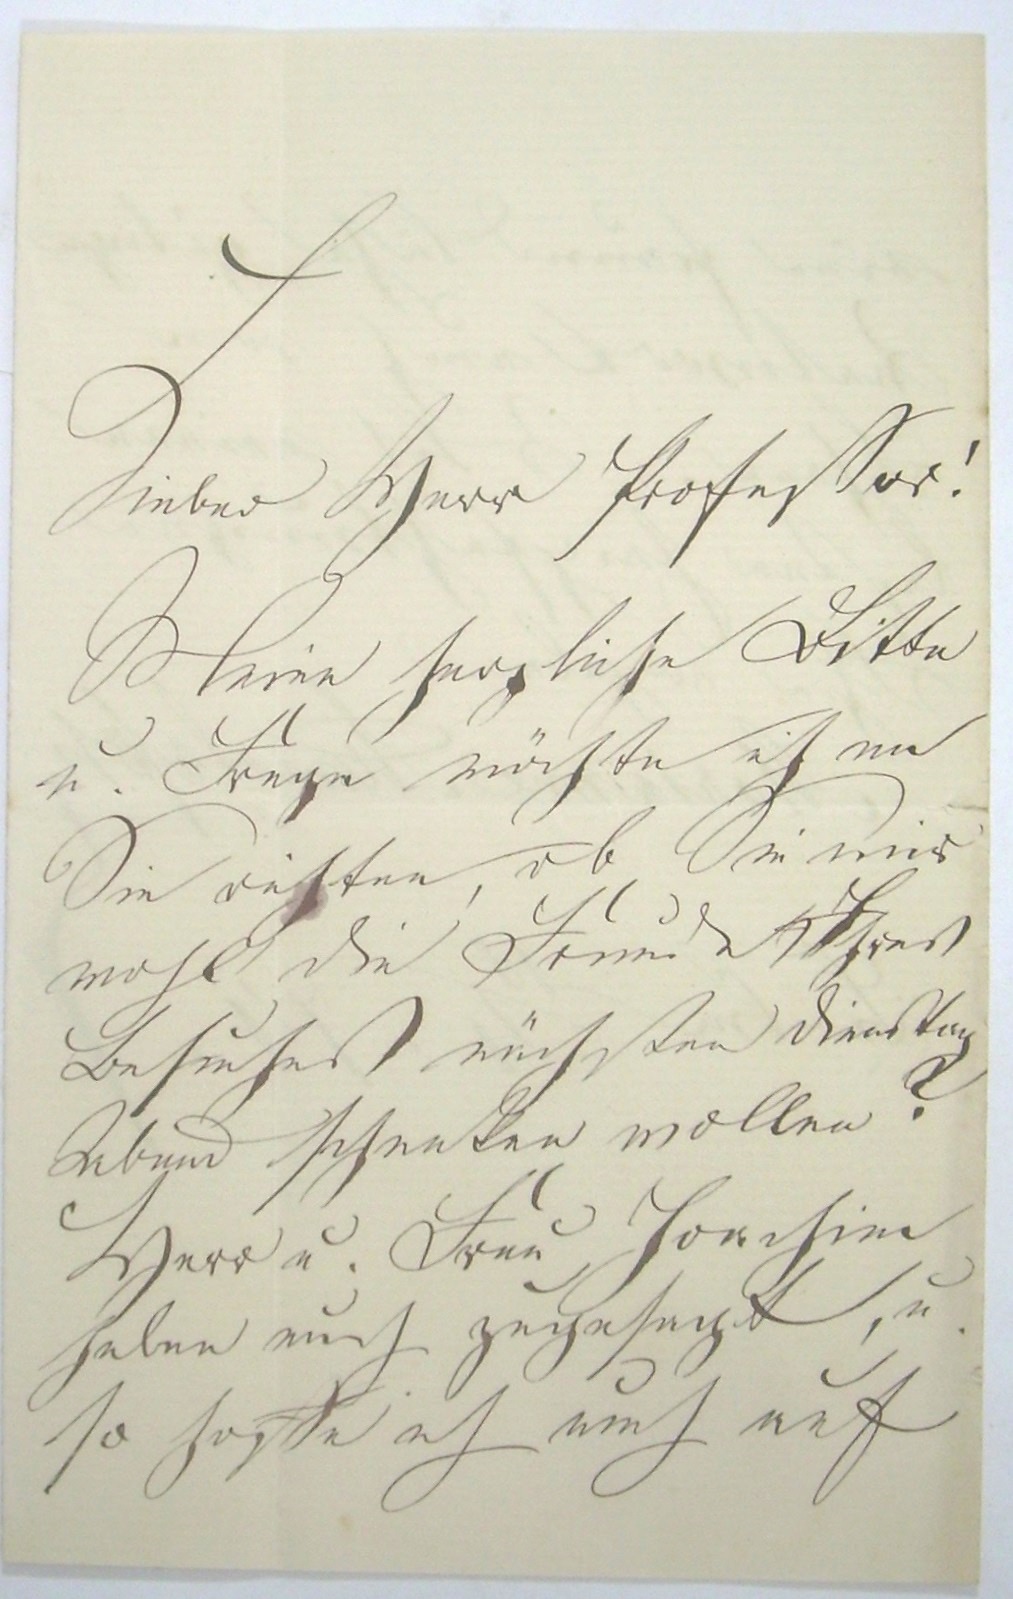 Lieber Herr Professor!
Meine herzliche Bitte
u. Frage möchte ich an
Sie richten, ob Sie mir
wohl die Freude Ihres
Besuches nächsten Dienstag
Abend schenken wollen?
Herr u. Frau Joachim
haben auch zugesagt, u.
so hoffe ich auch auf